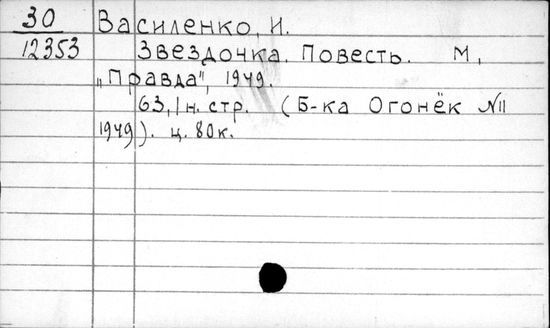 30 Василенко, И.
12353 Звездочка. Повесть. М,
„Правда", 1949.
63,1 н. стр. (Б-ка Огонёк №11
1949). ц. 80к.